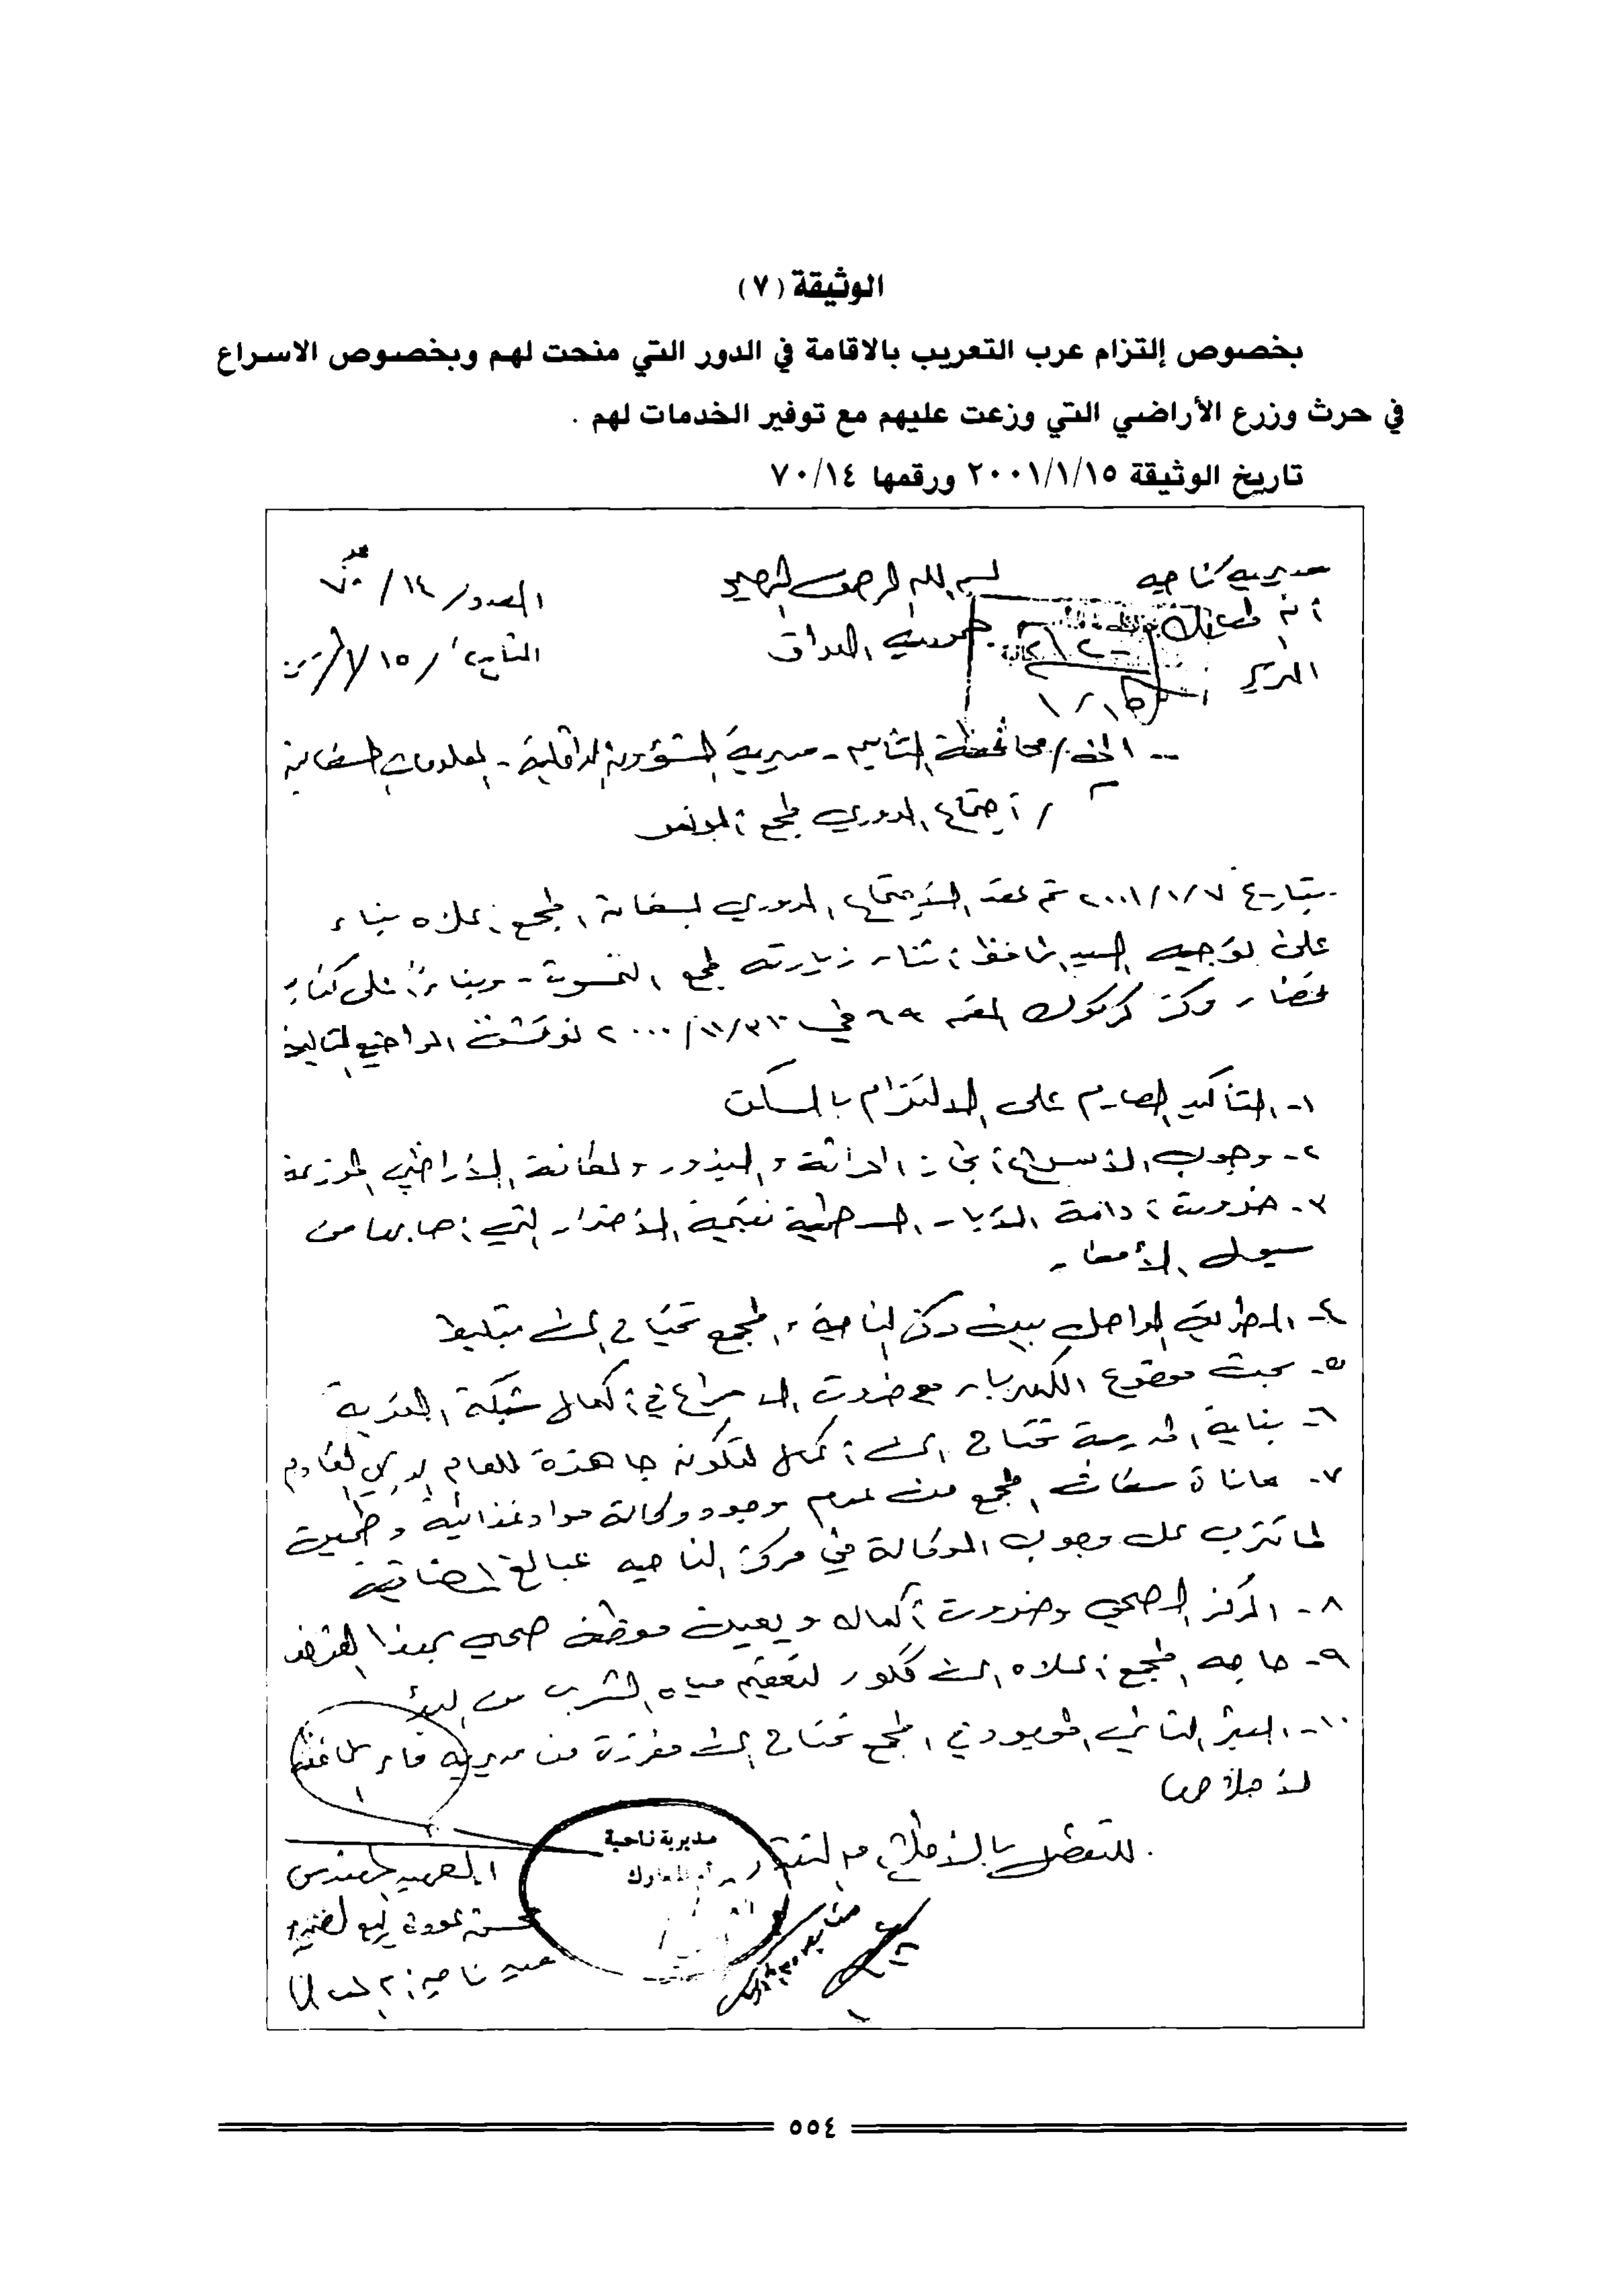 الوثيقة (٧)
بخصوص إلتزام عرب التعريب بالاقامة في الدور التي منحت لهم وبخصوص الاسراع
في حرث وزرع الأراضي التي وزعت عليهم مع توفير الخدمات لهم .
تاريخ الوثيقة ٢٠٠١/١/١٥ ورقمها ٧٠/١٤
مديرية ناحية
بسم الله الرحمن الرحيم
العدد/ ١٤/ ٧٠
أم المعارك
جمهورية العراق
التاريخ/ ١٥/
الى/ محافظة التأميم - مديرية الشؤون الداخلية - المعلومات السكانية
م/ أجتماع الدوري لمجمع
بتاريخ ٢٠٠١/١/٧ تم عقد الأجتماع الدوري لسكانة المجمع أعلاه بناء
على توجيه السيد المحافظ أثناء زيارته لمجمع - وبناءً على كتاب
مركز كركوك المرقم ٦٩ في نوقشت المواضيع التالية
١- التأكيد الصارم على الالتزام بالسكن
٢- وجوب الأسراع أنجاز الحراثة والبذور ولكافة الأراضي الموزعة
٣- ضرورت أدامة الآبار السطحية نتيجة الأضرار التي أصابها من
سيول الأمطار
٤- الطريق الواصل بين مركز الناحية والمجمع تحتاج الى تبليط
٥- بحث موضوع الكهرباء مع ضرورت الاسراع في أكمال شبكة
٦- بناية المدرسة تحتاج الى أكمال لتكون جاهزة للعام الدراسي القادم
٧- معاناة سكان المجمع من عدم وجود وكالة مواد غذائية وطحين
لما تترب على وجوب الوكالة في مركز الناحيه مبالغ اضافية
٨- المركز الصحي وضرورت أكماله ويعين موظف صحي بهذا الغرض
٩- حاجه المجمع أعلاه الى كلور لتعقيم مياه الشرب من البئر
١٠- البئر الثاني الموجود في المجمع تحتاج الى مفرزة من مديرية ماء
لأصلاحها
للتفضل بالأطلاع مع التقدير
مديرية ناحية
أم المعارك
المهندس
محسن
مدير ناحية أم المعارك